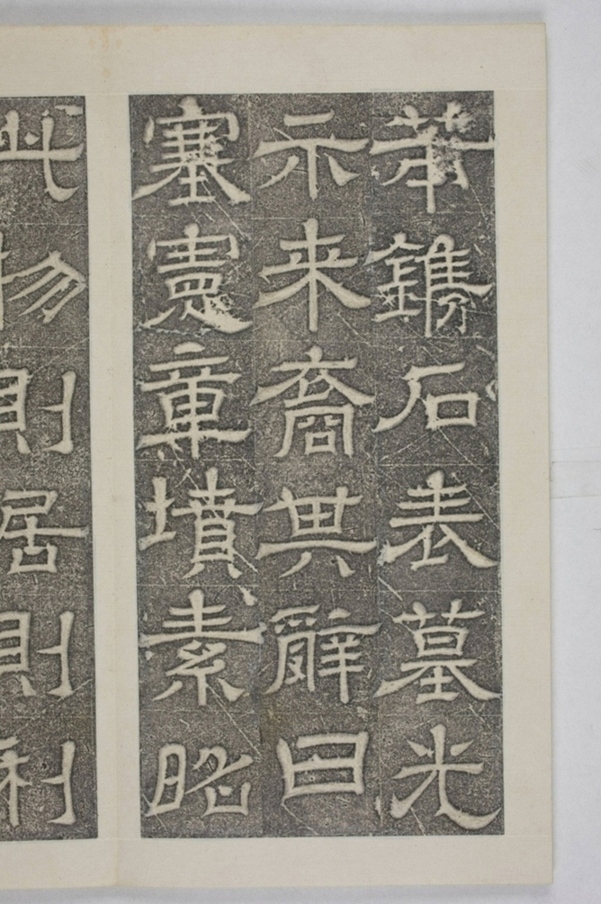 鐫石表墓光
示来裔其辭曰
塞憲章墳素昭
此物則居則利